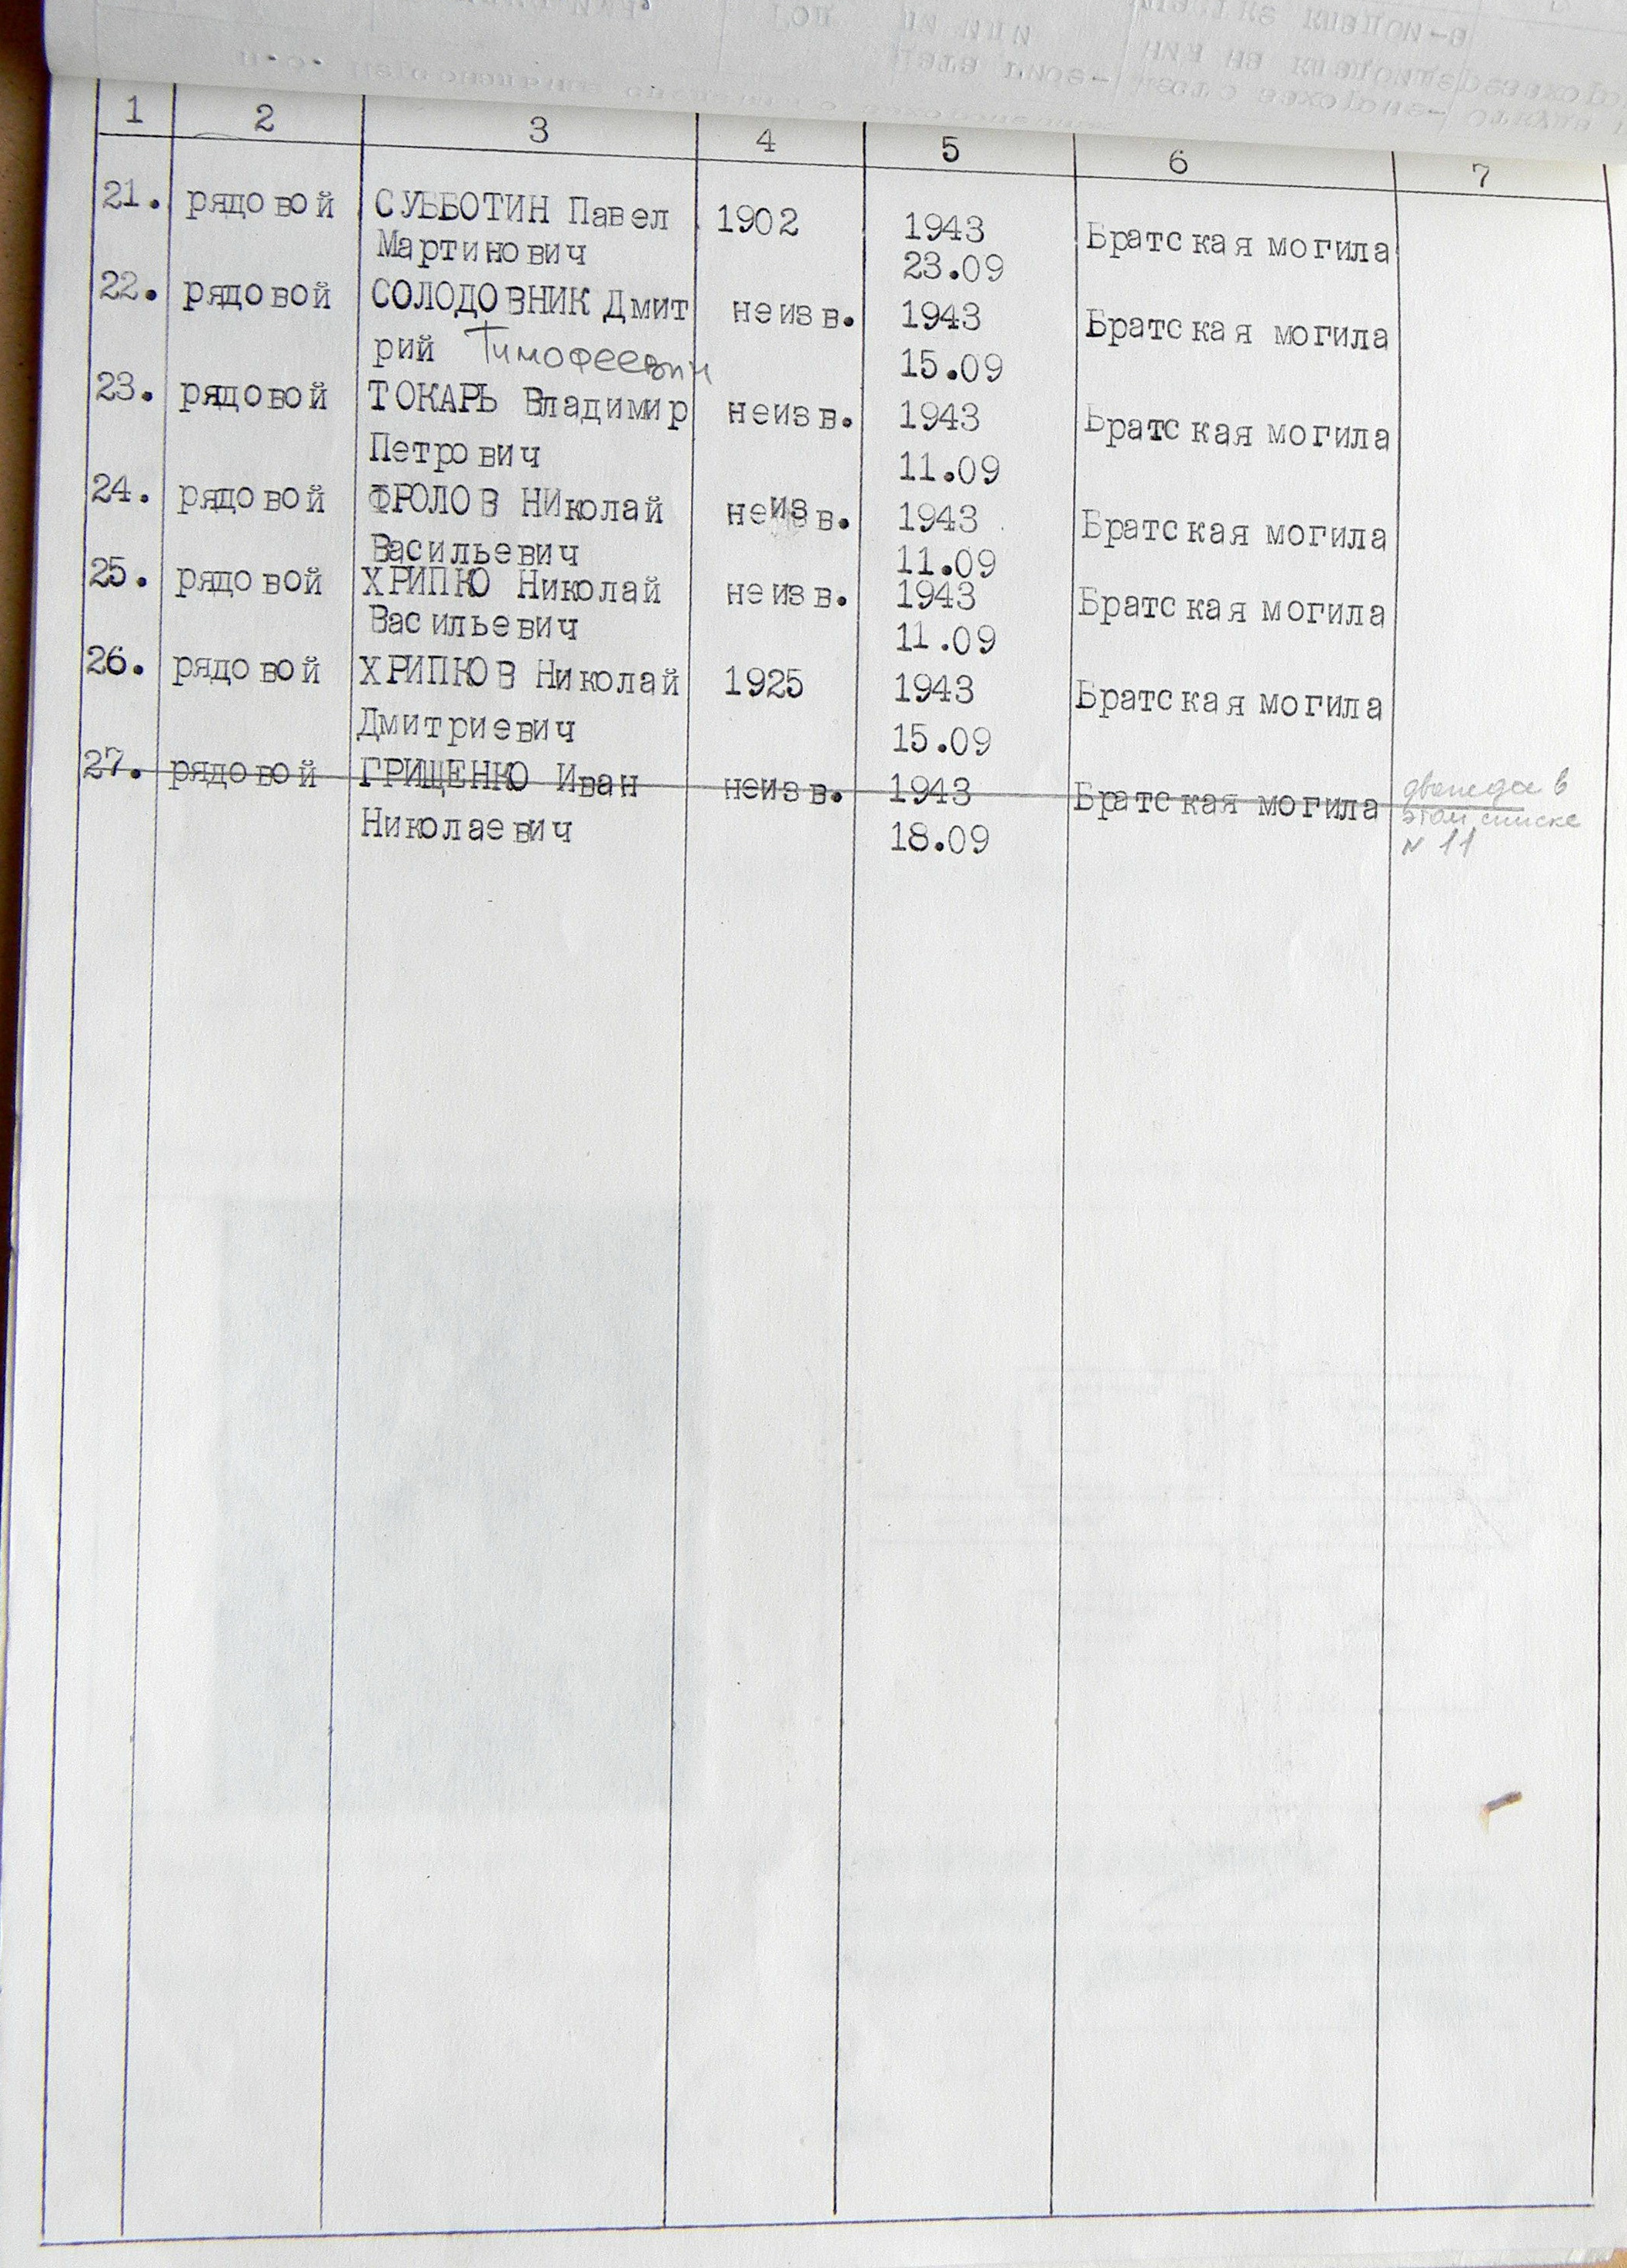 1 2 3 4 5 6 7
21. рядовой СУББОТИН Павел 1902 1943 Братская могила
Мартинович 23.09
22. рядовой СОЛОДОВНИК Дмит неизв. 1943 Братская могила
рий Тимофеевич 15.09
23. рядовой ТОКАРЬ Владимир неизв. 1943 Братская могила
Петрович 11.09
24. рядовой ФРОЛОВ НИколай неизв. 1943 Братская могила
Васильевич 11.09
25. рядовой ХРИПКО Николай неизв. 1943 Братская могила
Васильевич 11.09
26. рядовой ХРИПКОВ Николай 1925 1943 Братская могила
Дмитриевич 15.09
27. рядовой ГРИЩЕНКО Иван неизв. 1943 Братская могила дважды в
Николаевич 18.09 этом списке
N 11